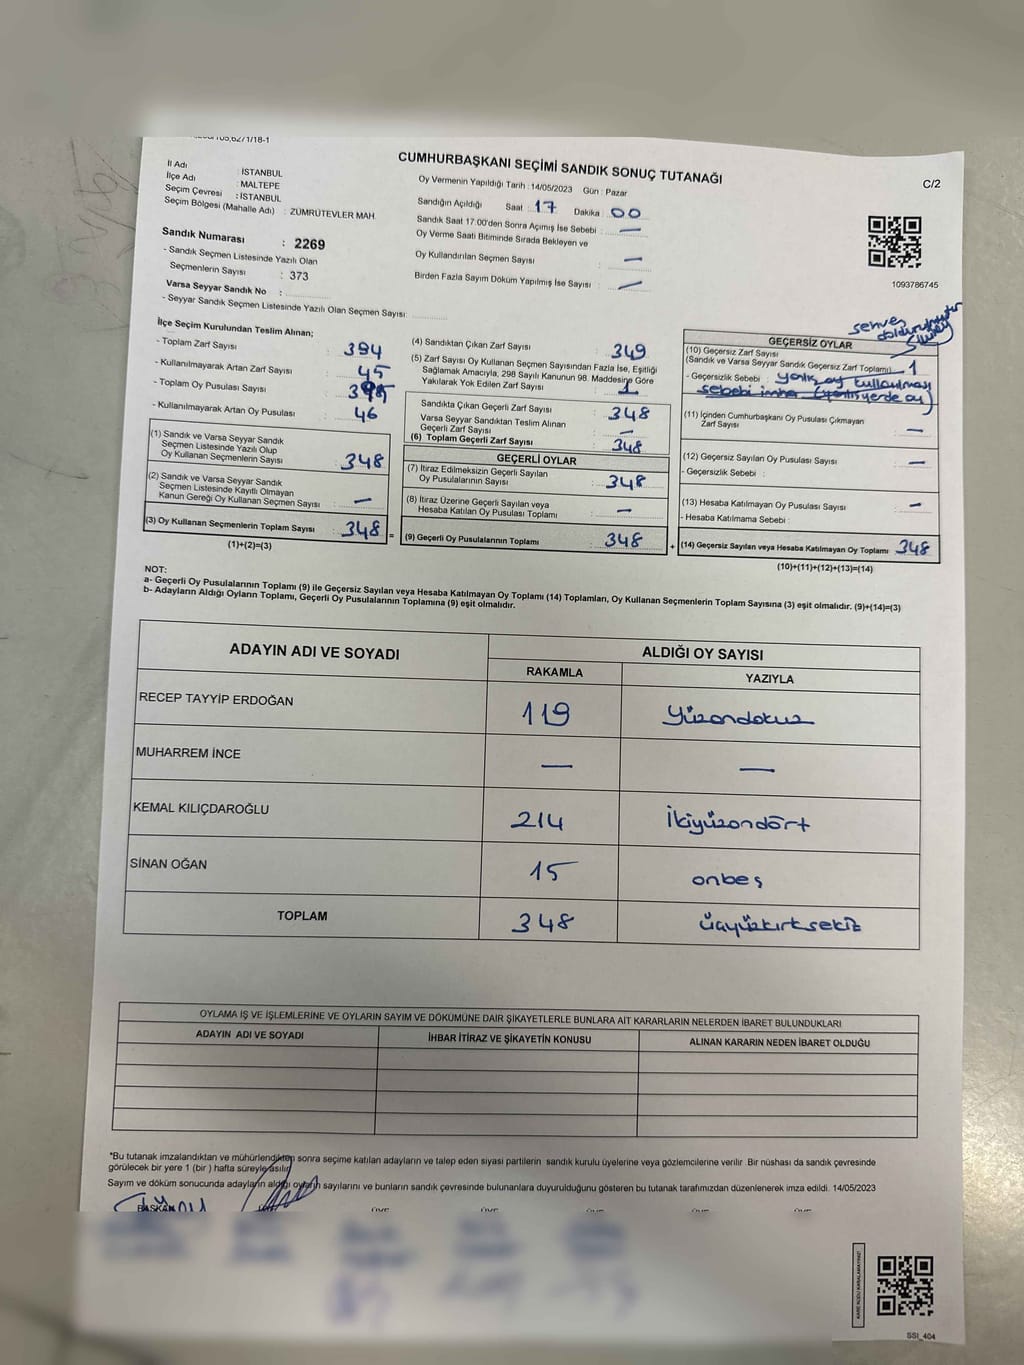 CUMHURBAŞKANI SEÇİMİ SANDIK SONUÇ TUTANAĞI
C/2
İl Adı : İSTANBUL
İlçe Adı : MALTEPE
Seçim Çevresi : İSTANBUL
Seçim Bölgesi (Mahalle Adı) : ZÜMRÜTEVLER MAH.
Sandık Numarası : 2269
- Sandık Seçmen Listesinde Yazılı Olan
Seçmenlerin Sayısı : 373
Varsa Seyyar Sandık No :
- Seyyar Sandık Seçmen Listesinde Yazılı Olan Seçmen Sayısı:
Oy Vermenin Yapıldığı Tarih : 14/05/2023 Gün : Pazar
Sandığın Açıldığı Saat : 17 Dakika : 00
Sandık Saat 17:00'den Sonra Açımış İse Sebebi : —
Oy Verme Saati Bitiminde Sırada Bekleyen ve
Oy Kullandırılan Seçmen Sayısı : —
Birden Fazla Sayım Döküm Yapılmış İse Sayısı : —
1093786745
İlçe Seçim Kurulundan Teslim Alınan;
- Toplam Zarf Sayısı : 394
- Kullanılmayarak Artan Zarf Sayısı : 45
- Toplam Oy Pusulası Sayısı :
- Kullanılmayarak Artan Oy Pusulası : 46
(1) Sandık ve Varsa Seyyar Sandık
Seçmen Listesinde Yazılı Olup
Oy Kullanan Seçmenlerin Sayısı : 348
(2) Sandık ve Varsa Seyyar Sandık
Seçmen Listesinde Kayıtlı Olmayan
Kanun Gereği Oy Kullanan Seçmen Sayısı : —
(3) Oy Kullanan Seçmenlerin Toplam Sayısı : 348 =
(1)+(2)=(3)
(4) Sandıktan Çıkan Zarf Sayısı : 349
(5) Zarf Sayısı Oy Kullanan Seçmen Sayısından Fazla İse, Eşitliği
Sağlamak Amacıyla, 298 Sayılı Kanunun 98. Maddesine Göre
Yakılarak Yok Edilen Zarf Sayısı : 1
Sandıkta Çıkan Geçerli Zarf Sayısı : 348
Varsa Seyyar Sandıktan Teslim Alınan
Geçerli Zarf Sayısı : —
(6) Toplam Geçerli Zarf Sayısı : 348
GEÇERLİ OYLAR
(7) İtiraz Edilmeksizin Geçerli Sayılan
Oy Pusulalarının Sayısı : 348
(8) İtiraz Üzerine Geçerli Sayılan veya
Hesaba Katılan Oy Pusulası Toplamı : —
(9) Geçerli Oy Pusulalarının Toplamı : 348 +
sehven
GEÇERSİZ OYLAR
(10) Geçersiz Zarf Sayısı
(Sandık ve Varsa Seyyar Sandık Geçersiz Zarf Toplamı) : 1
- Geçersizlik Sebebi : yanlış oy kullanılması
sebebi imha (yanlış yerde oy)
(11) İçinden Cumhurbaşkanı Oy Pusulası Çıkmayan
Zarf Sayısı : —
(12) Geçersiz Sayılan Oy Pusulası Sayısı : —
- Geçersizlik Sebebi :
(13) Hesaba Katılmayan Oy Pusulası Sayısı : —
- Hesaba Katılmama Sebebi :
(14) Geçersiz Sayılan veya Hesaba Katılmayan Oy Toplamı : 348
(10)+(11)+(12)+(13)=(14)
NOT:
a- Geçerli Oy Pusulalarının Toplamı (9) ile Geçersiz Sayılan veya Hesaba Katılmayan Oy Toplamı (14) Toplamları, Oy Kullanan Seçmenlerin Toplam Sayısına (3) eşit olmalıdır. (9)+(14)=(3)
b- Adayların Aldığı Oyların Toplamı, Geçerli Oy Pusulalarının Toplamına (9) eşit olmalıdır.
ADAYIN ADI VE SOYADI ALDIĞI OY SAYISI
RAKAMLA YAZIYLA
RECEP TAYYİP ERDOĞAN 119 Yüzondokuz
MUHARREM İNCE — —
KEMAL KILIÇDAROĞLU 214 İkiyüzondört
SİNAN OĞAN 15 onbeş
TOPLAM 348 üçyüzkırksekiz
OYLAMA İŞ VE İŞLEMLERİNE VE OYLARIN SAYIM VE DÖKÜMÜNE DAİR ŞİKAYETLERLE BUNLARA AİT KARARLARIN NELERDEN İBARET BULUNDUKLARI
ADAYIN ADI VE SOYADI İHBAR İTİRAZ VE ŞİKAYETİN KONUSU ALINAN KARARIN NEDEN İBARET OLDUĞU
*Bu tutanak imzalandıktan ve mühürlendikten sonra seçime katılan adayların ve talep eden siyasi partilerin sandık kurulu üyelerine veya gözlemcilerine verilir. Bir nüshası da sandık çevresinde
görülecek bir yere 1 (bir) hafta süreyle asılır.
Sayım ve döküm sonucunda adayların aldığı oyların sayılarını ve bunların sandık çevresinde bulunanlara duyurulduğunu gösteren bu tutanak tarafımızdan düzenlenerek imza edildi. 14/05/2023
BAŞKAN
SSI_404